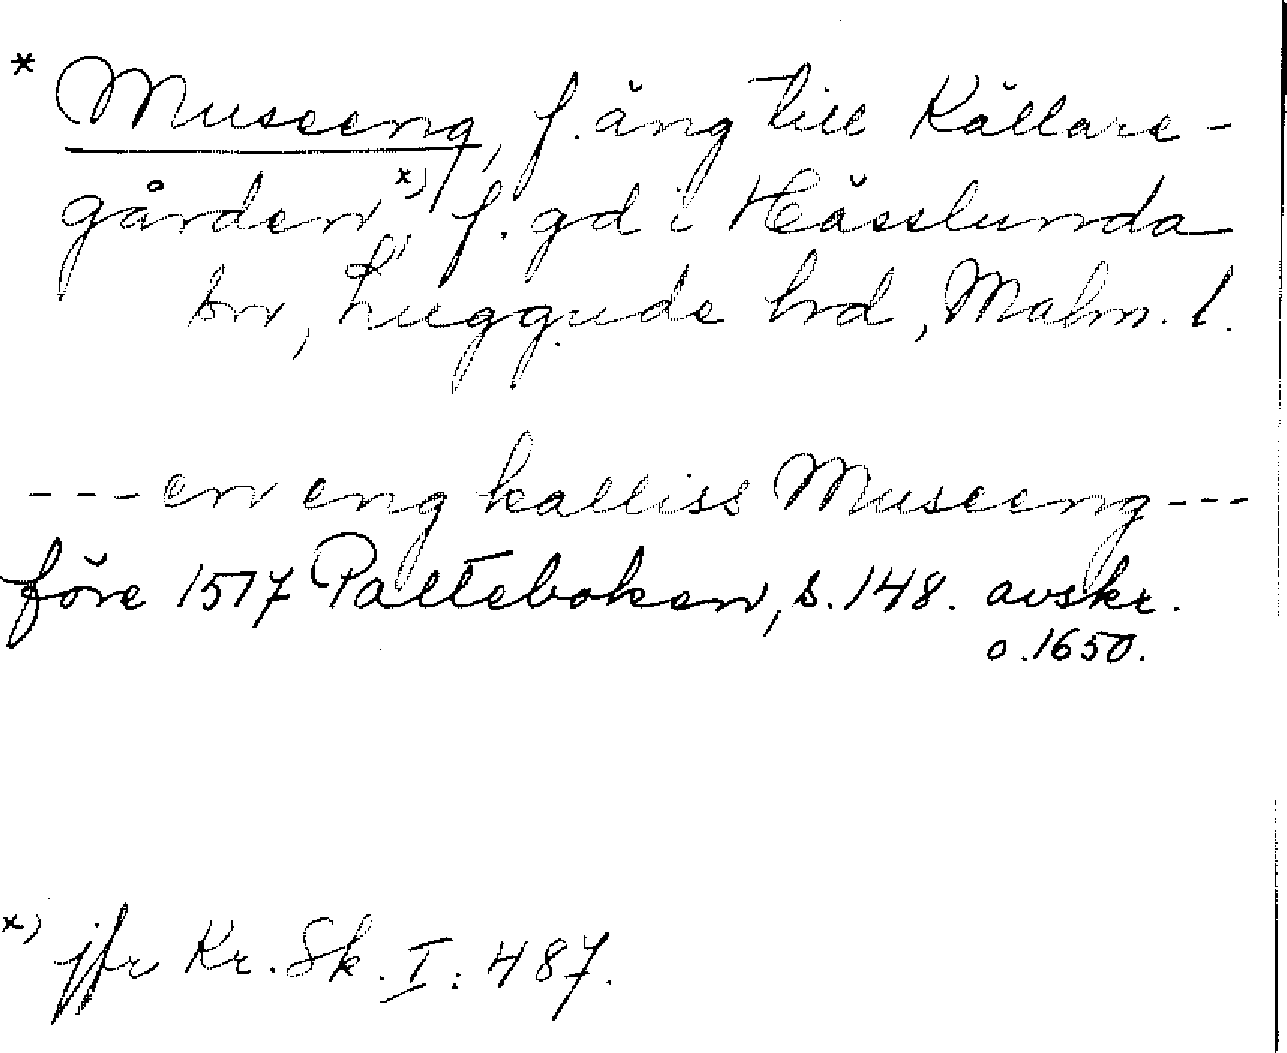 * Museeng, f. äng till Källare-
gården x), f. gd i Hässlunda
by, Luggude hd, Malm. l.
--- en eng kalliss Museeng ---
före 1517 Palteboken, s. 148. avskr.
o. 1650.
x) jfr Kr. Sk. I: 487.